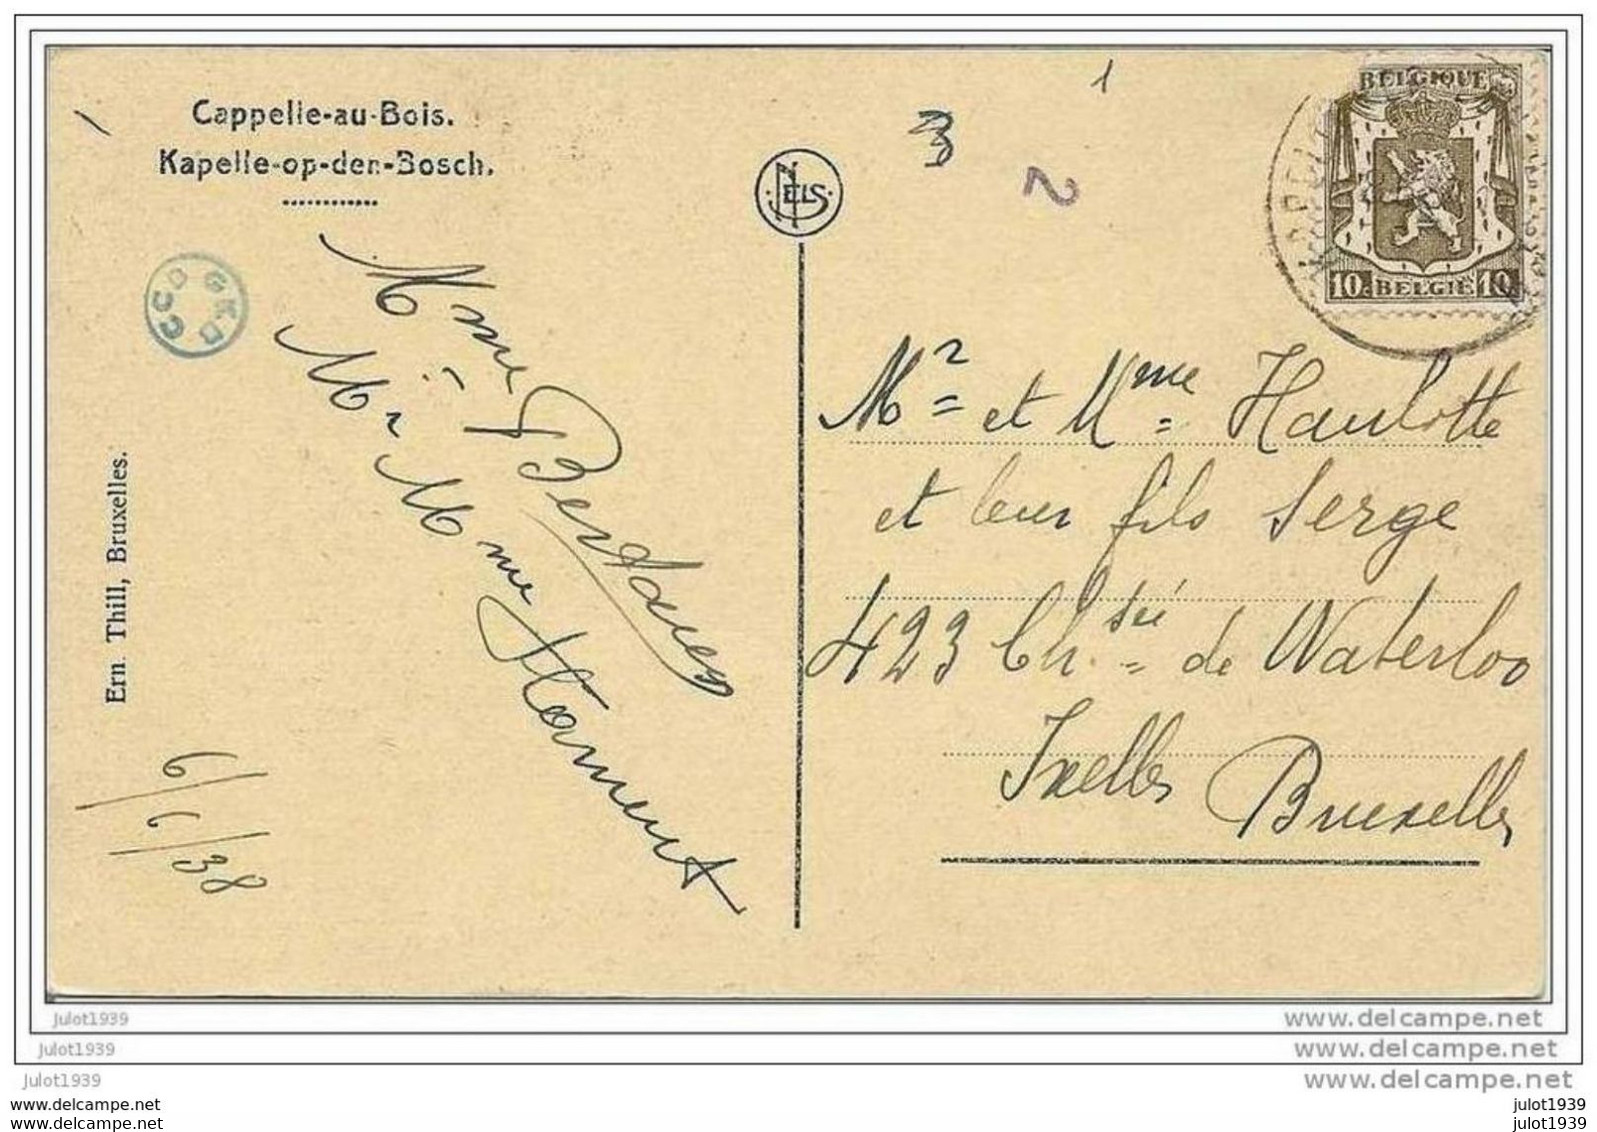 Cappelle-au-Bois.
Kapelle-op-den-Bosch.
NELS
BELGIQUE
10c BELGIË 10c
3
2
1
Ern. Thill, Bruxelles.
Mme
Mr Mme
6/6/38
Mr et Mme Haulotte
et leur fils Serge
423 Chsée de Waterloo
Ixelles Bruxelles
julot1939
julot1939
julot1939
www.delcampe.net
www.delcampe.net
www.delcampe.net
www.delcampe.net
www.delcampe.net
julot1939
julot1939